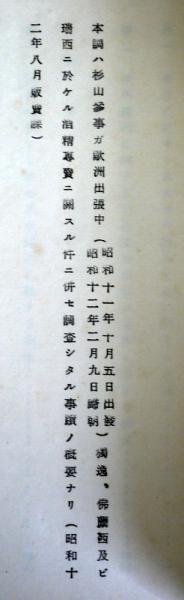 本調ハ杉山參事ガ歐洲出張中（昭和十一年十月五日出發
昭和十二年二月九日歸朝）獨逸、佛蘭西及ビ
瑞西ニ於ケル酒精專賣ニ關スル件ニ併セ調査シタル事蹟ノ概要ナリ（昭和十
二年八月販賣課）